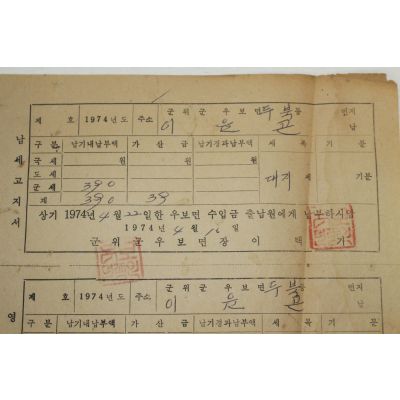 납세고지서
제 호 1974년도 주소 군위군우보면두북동 번지
이 윤 납
구분 납기내납부액 가산금 납기경과납부액 세목 기분
국세 원 원 원 대지 제 기분
도세
군세 390
계 390 39
상기 1974년 4월 22일한 우보면 수입금 출납원에게 납부하시압
1974년 4월 16일
군위군우보면장 이 택 기
영
제 호 1974년도 주소 군위군우보면두북동 번지
이 윤 납
구분 납기내납부액 가산금 납기경과납부액 세목 기분
국세 원 원 원